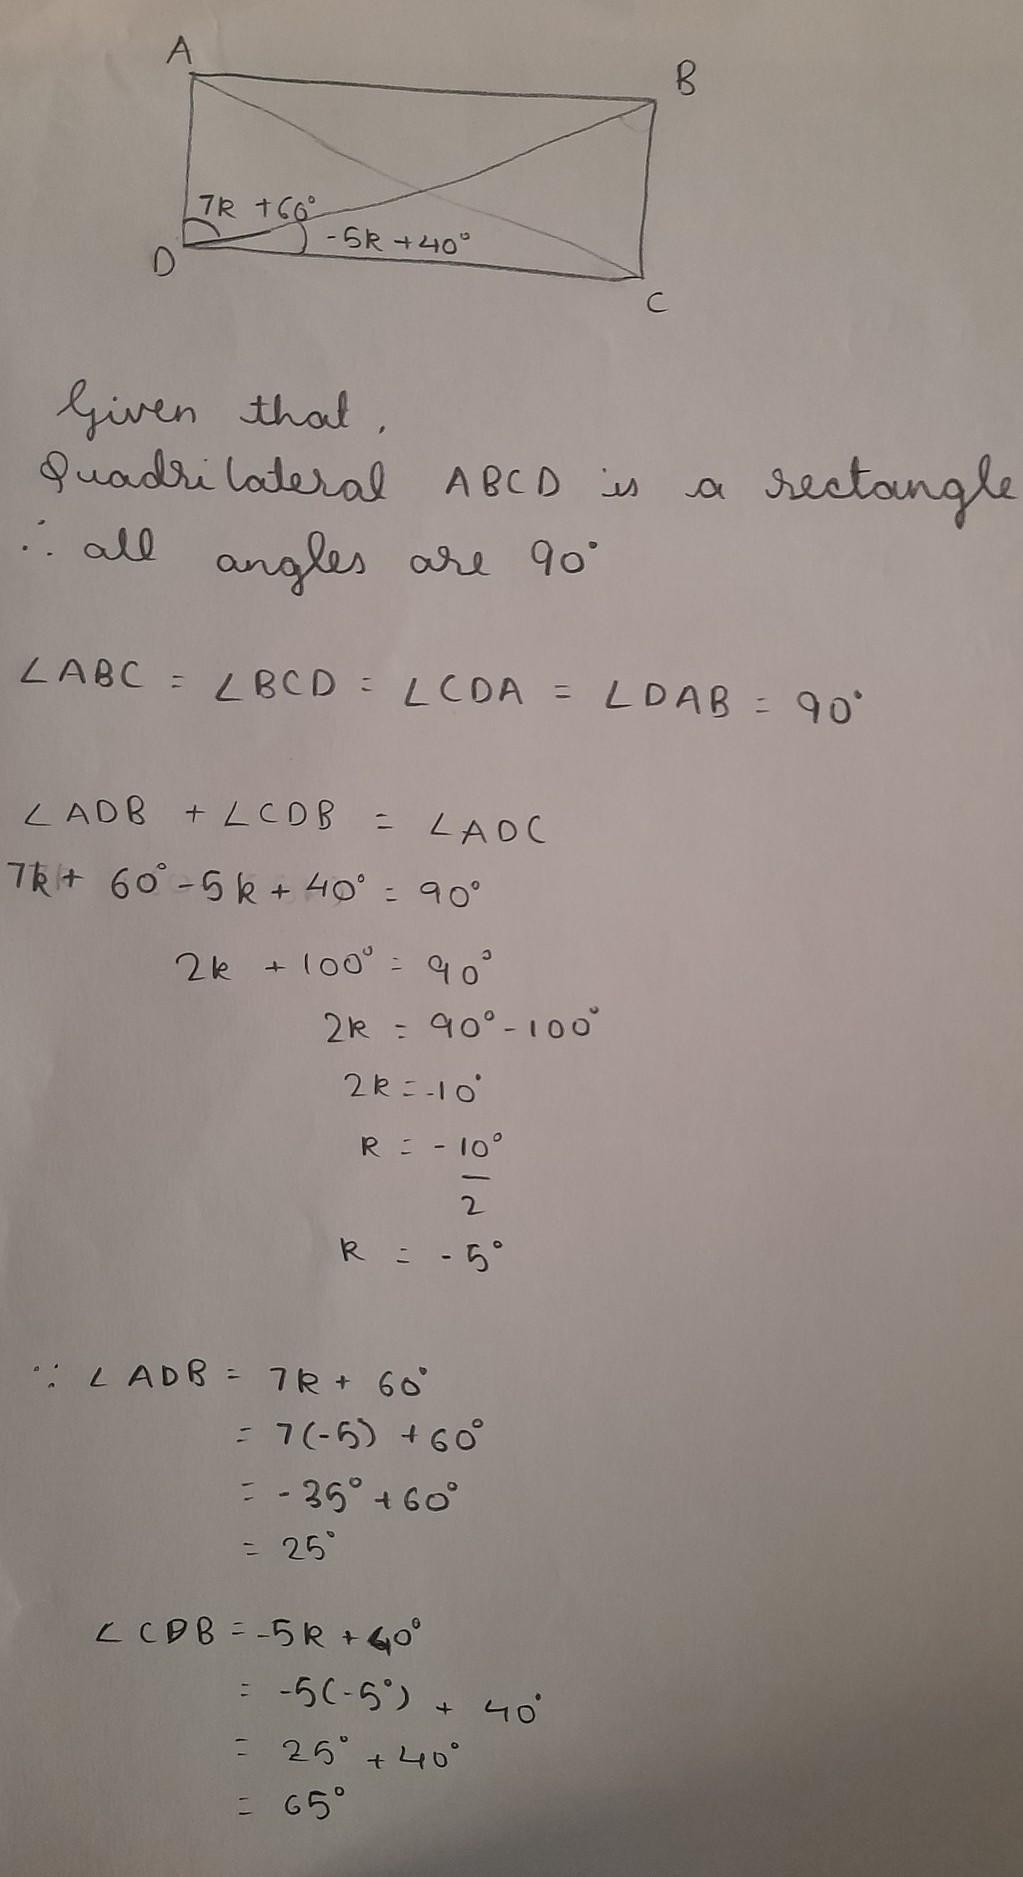 A
B
7k + 60°
-5k + 40°
D
C
Given that,
Quadrilateral ABCD is a rectangle
∴ all angles are 90°
∠ABC = ∠BCD = ∠CDA = ∠DAB = 90°
∠ADB + ∠CDB = ∠ADC
7k + 60° - 5k + 40° = 90°
2k + 100° = 90°
2k = 90° - 100°
2k = -10°
k = -10°
2
k = -5°
∵ ∠ADB = 7k + 60°
= 7(-5) + 60°
= -35° + 60°
= 25°
∠CDB = -5k + 40°
= -5(-5°) + 40°
= 25° + 40°
= 65°